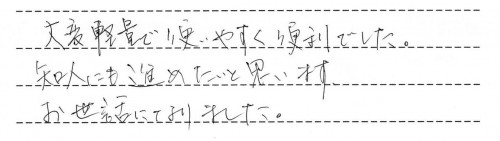 大変軽量で使いやすく便利でした。
知人にも進めたいと思います
お世話になりました。